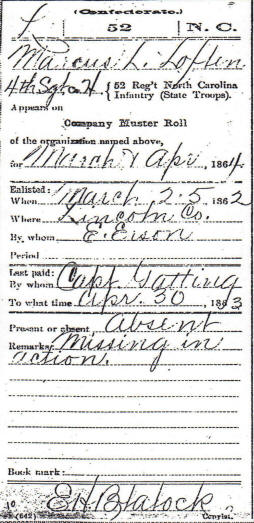 (Confederate.)
L 52 N. C.
Marcus L. Loften
4th Sgt Co. H { 52 Reg't North Carolina
Infantry (State Troops).
Appears on
Company Muster Roll
of the organization named above,
for March & Apr, 1864.
Enlisted:
When March 25 1862
Where Lincoln Co.
By whom E. Eison
Period
Last paid:
By whom Capt Gatting
To what time Apr. 30 1863
Present or absent Absent
Remarks: Missing in
action.
Book mark:
(642) E H Blalock Copyist.